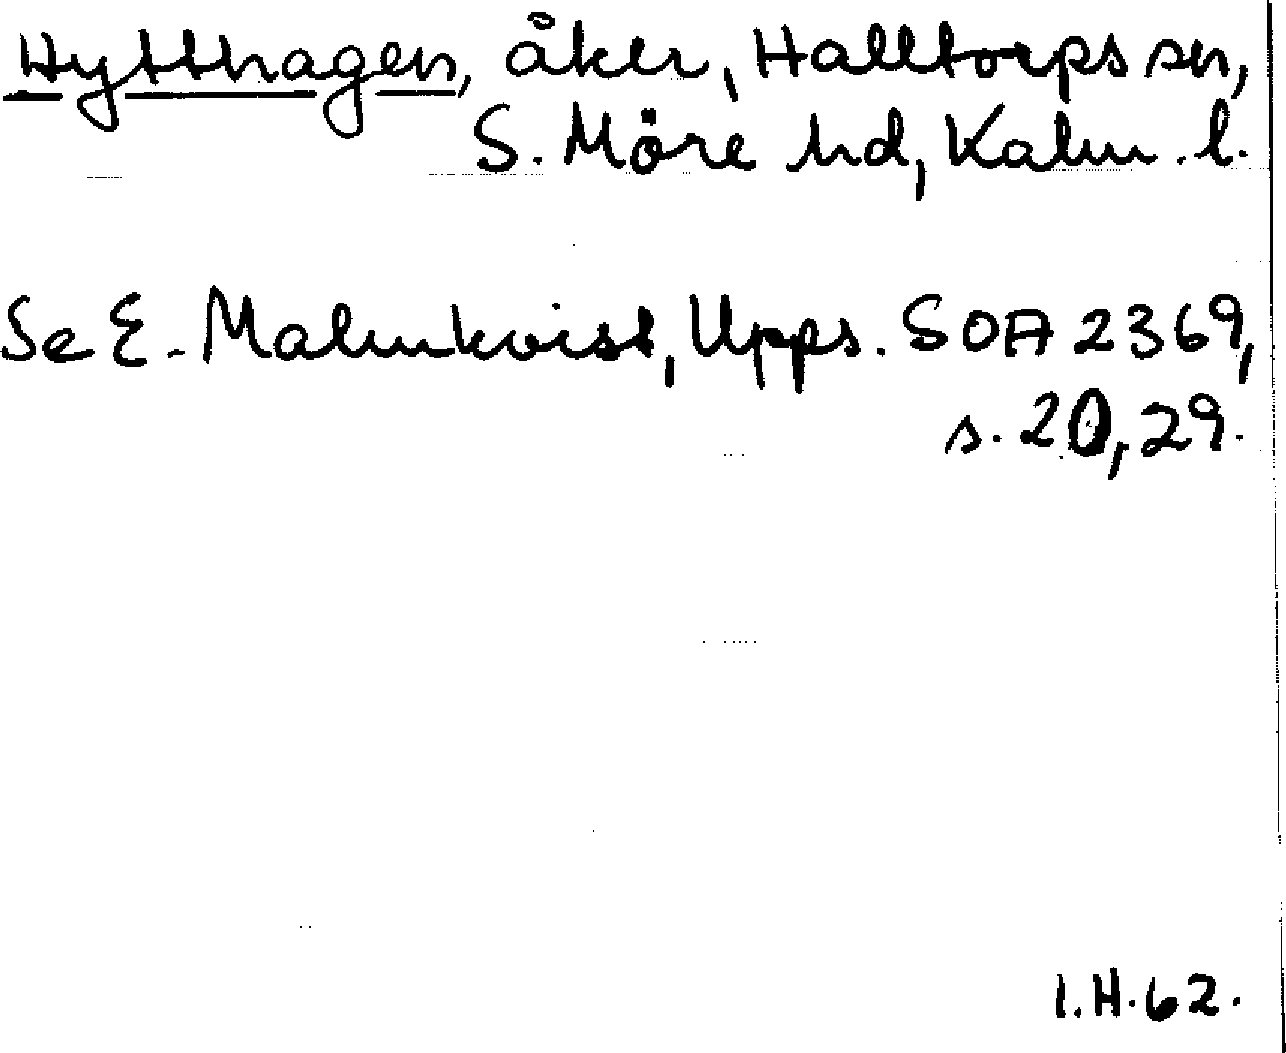 Hytthagen, åker, Halltorps sn,
S. Möre hd, Kalm. l.
Se E. Malmkvist, Upps. SOA 2369,
s. 20, 29.
I.H. 62.